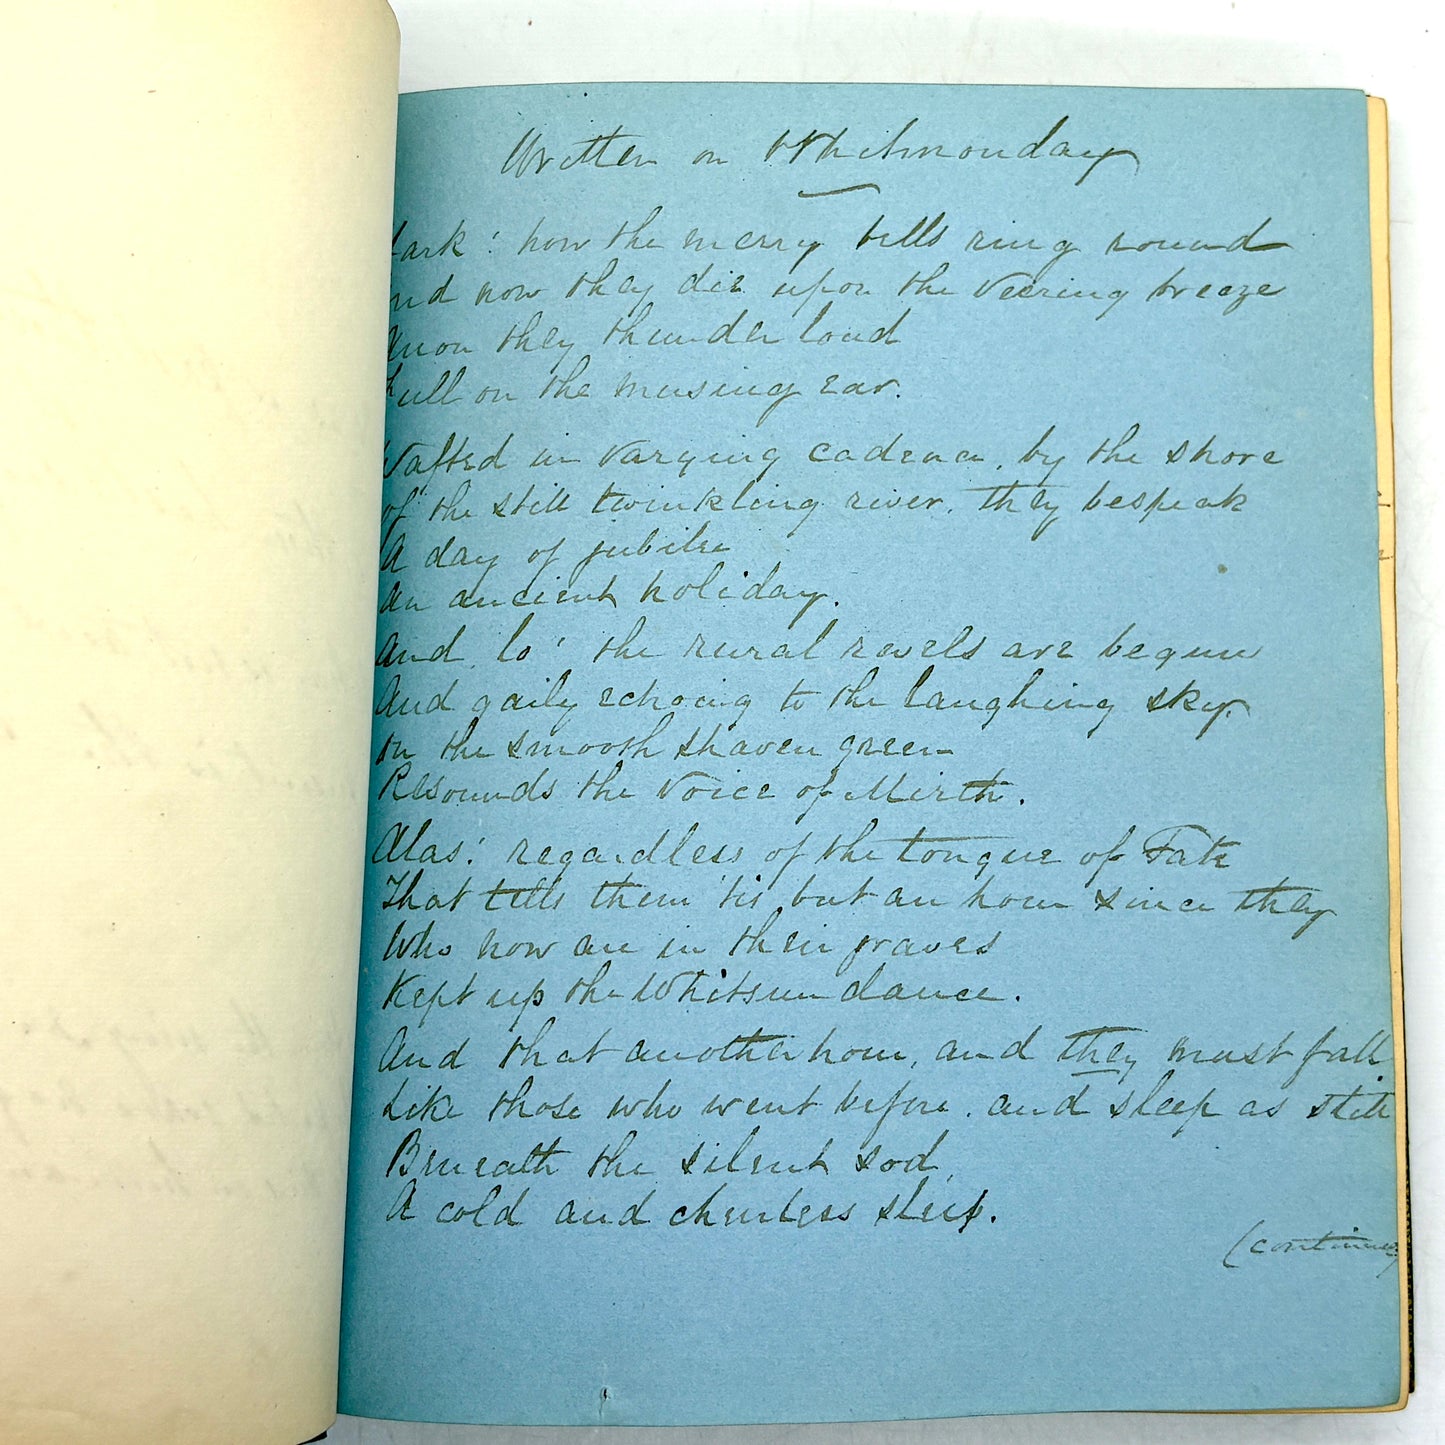 Written on Whitmonday
Hark! how the merry bells ring round
And now they die upon the veering breeze
Anon they thunder loud
Full on the musing ear.
Wafted in varying cadence, by the shore
of the still twinkling river, they bespeak
A day of jubilee
An ancient holiday.
And, lo! the rural revels are begun
And gaily echoing to the laughing sky,
On the smooth shaven green
Resounds the voice of Mirth.
Alas! regardless of the tongue of Fate
That tells them 'tis but an hour since they
Who now are in their graves
Kept up the Whitsun dance.
And that another hour, and they must fall
Like those who went before, and sleep as still
Beneath the silent sod
A cold and cheerless sleep.
(continued)